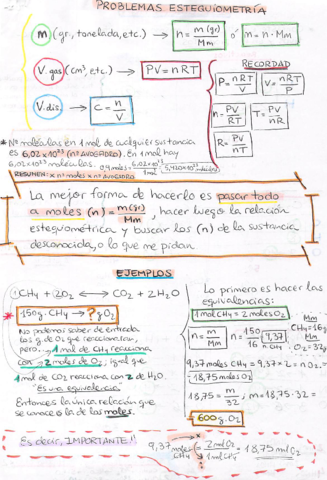 PROBLEMAS ESTEGUIOMETRÍA
m (gr, tonelada, etc.) → n = m(gr)/Mm ó m = n · Mm
V.gas (cm³, etc.) → PV = nRT
V.dis. → C = n/V
RECORDAD
P = nRT/V V = nRT/P
n = PV/RT T = PV/nR
R = PV/nT
* Nº moléculas en 1 mol de cualquier sustancia
es 6,02 x 10²³ (nº AVOGADRO). En 1 mol hay
6,02 x 10²³ moléculas.
RESUMEN: x nº moles x nº AVOGADRO
La mejor forma de hacerlo es pasar todo
a moles (n) = m(gr)/Mm, hacer luego la relación
esteguiométrica y buscar los (n) de la sustancia
desconocida, o lo que me pidan.
EJEMPLOS
CH4 + 2O2 ↔ CO2 + 2H2O
* 150g. CH4 → ? g O2
No podemos saber de entrada
los g de O2 que reaccionaran,
pero... 1 mol de CH4 reacciona
con 2 moles de O2; igual que
1 mol de CO2 reacciona con 2 de H2O.
"Es una equivalencia"
Entonces la única relación que
se conoce es la de los moles.
Lo primero es hacer las
equivalencias:
1 mol CH4 = 2 moles O2
n = m/Mm n = 150/16 = 9,37 n CH4
Mm
CH4 = 16g
Mm
O2 = 32g
9,37 moles CH4 = 9,37 x 2 = n O2 =
= 18,75 moles O2
18,75 = m/32 ; m = 18,75 · 32 =
= 600 g. O2
Es decir, IMPORTANTE!!
9,37 moles CH4 · 2 mol O2/1 mol CH4 = 18,75 mol O2